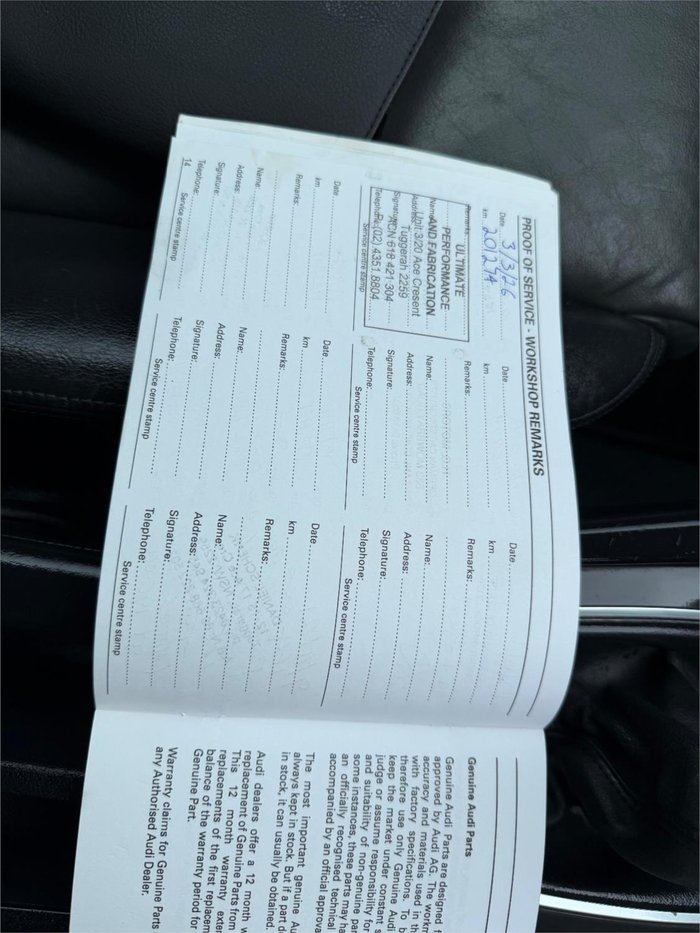 PROOF OF SERVICE - WORKSHOP REMARKS
Date 3/3/26
km 201214
Remarks:
Name:
Address:
Signature:
Telephone:
ULTIMATE
PERFORMANCE
AND FABRICATION
Unit 3/20 Ace Cresent
Tuggerah 2259
ACN 618 421 304
P: (02) 4351 8804
Service centre stamp
Date
km
Remarks:
Name:
Address:
Signature:
Telephone:
Service centre stamp
Date
km
Remarks:
Name:
Address:
Signature:
Telephone:
Service centre stamp
Date
km
Remarks:
Name:
Address:
Signature:
Telephone:
Service centre stamp
Date
km
Remarks:
Name:
Address:
Signature:
Telephone:
Service centre stamp
Date
km
Remarks:
Name:
Address:
Signature:
Telephone:
Service centre stamp
14
Genuine Audi Parts
Genuine Audi Parts are designed
approved by Audi AG. The
accuracy and materials used in
with factory specifications. To
therefore use only Genuine Audi
keep the market under constant
judge or assume responsibility for
and suitability of non-genuine
some instances, these parts may
an officially recognised technical
accompanied by an official
The most important genuine
always kept in stock. But if a part
in stock, it can usually be obtained.
Audi dealers offer a 12 month
replacement of Genuine Parts from
This 12 month warranty
replacements of the first
balance of the warranty period for
Genuine Part.
Warranty claims for Genuine Parts
any Authorised Audi Dealer.